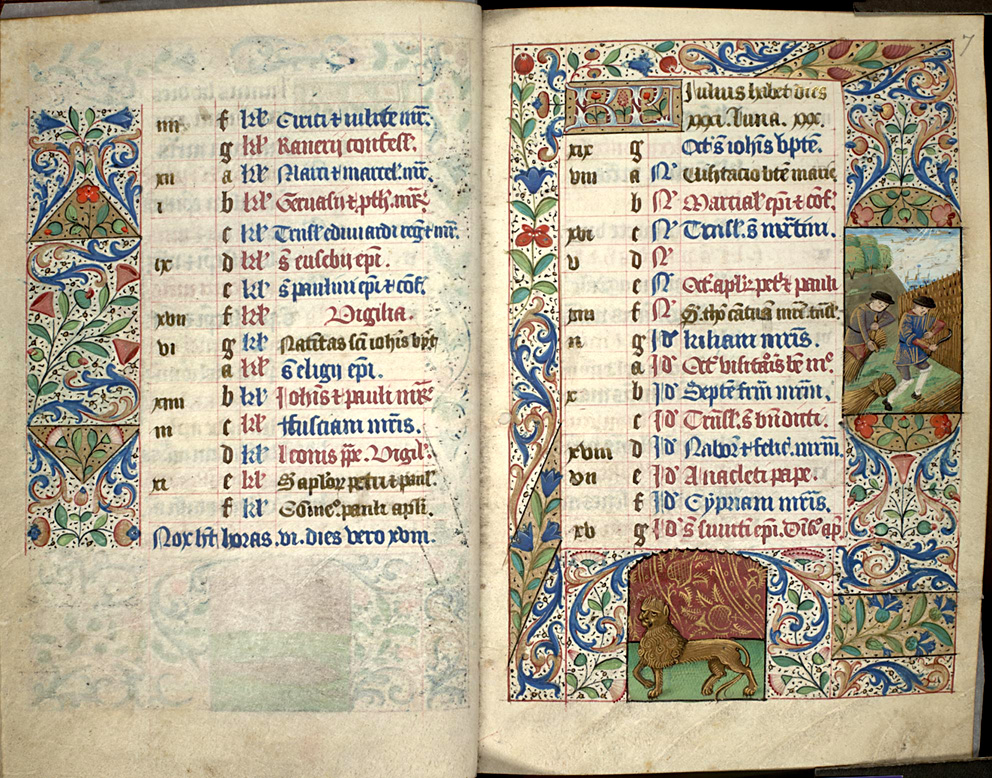 iiii f kl' Cirici & iulite mr̄.
g kl' Ranerij confess.
xii a kl' Marci & marcel. mr̄.
i b kl' Geruasij & pth. mr̄.
c kl' Trasl. eduuardi reg & mr̄.
ix d kl' s̄ eusebij ep̄i.
e kl' s̄ paulini ep̄i & cōf.
xvii f kl' Vigilia.
vi g kl' Natiitas sc̄i iohis bpt̄
a kl' s̄ eligij ep̄i.
xiiii b kl' Iohīs & pauli mr̄
iii c kl' ffusciani mr̄is.
d kl' Leonis pp̄e. Vigil'.
xi e kl' S aplor̄ petri & paul'.
f kl' Cōme. pauli apl̄i.
Nox h̄t horas .vi. dies vero xviii.
7
KL Iulius habet dies
xxxi. luna. xxx.
xix g Oct s̄ iohis bpt̄e.
viii a N' Visitacio bt̄e marie
b N' Martial' ep̄i & cōf.
xvi c N' Trasl. s̄ mr̄tini.
v d N'
e N' Oct. aplr̄ pet̄ & pauli
xiii f N'
ii g Id' kiliani mr̄is.
a Id' Oct visitacōis be me
x b Id' Septē fr̄m mr̄m.
c Id' Trasl. s̄ bn̄dicti.
xviii d Id' Nabor & felic. mr̄m.
vii e Id' Anacleti pape.
f Id' Cypriani mr̄is.
xv g Id'